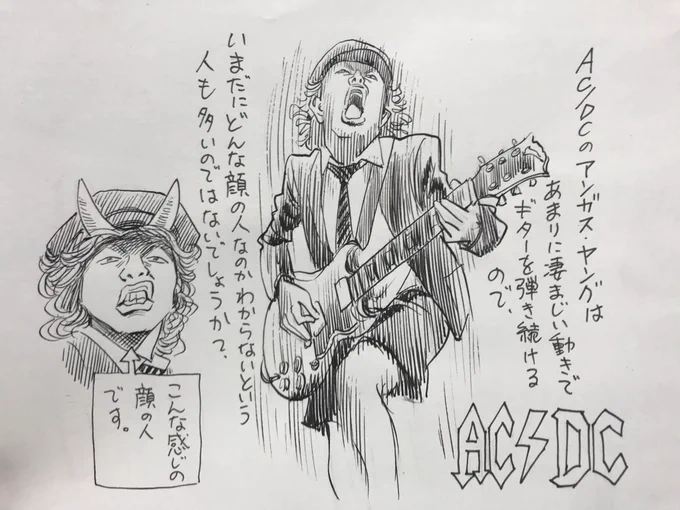 AC/DCのアンガス・ヤングは
あまりに凄まじい動きで
ギターを弾き続ける
ので、
いまだにどんな顔の人なのかわからないという
人も多いのではないでしょうか?
こんな感じの
顔の人
です。
AC⚡DC